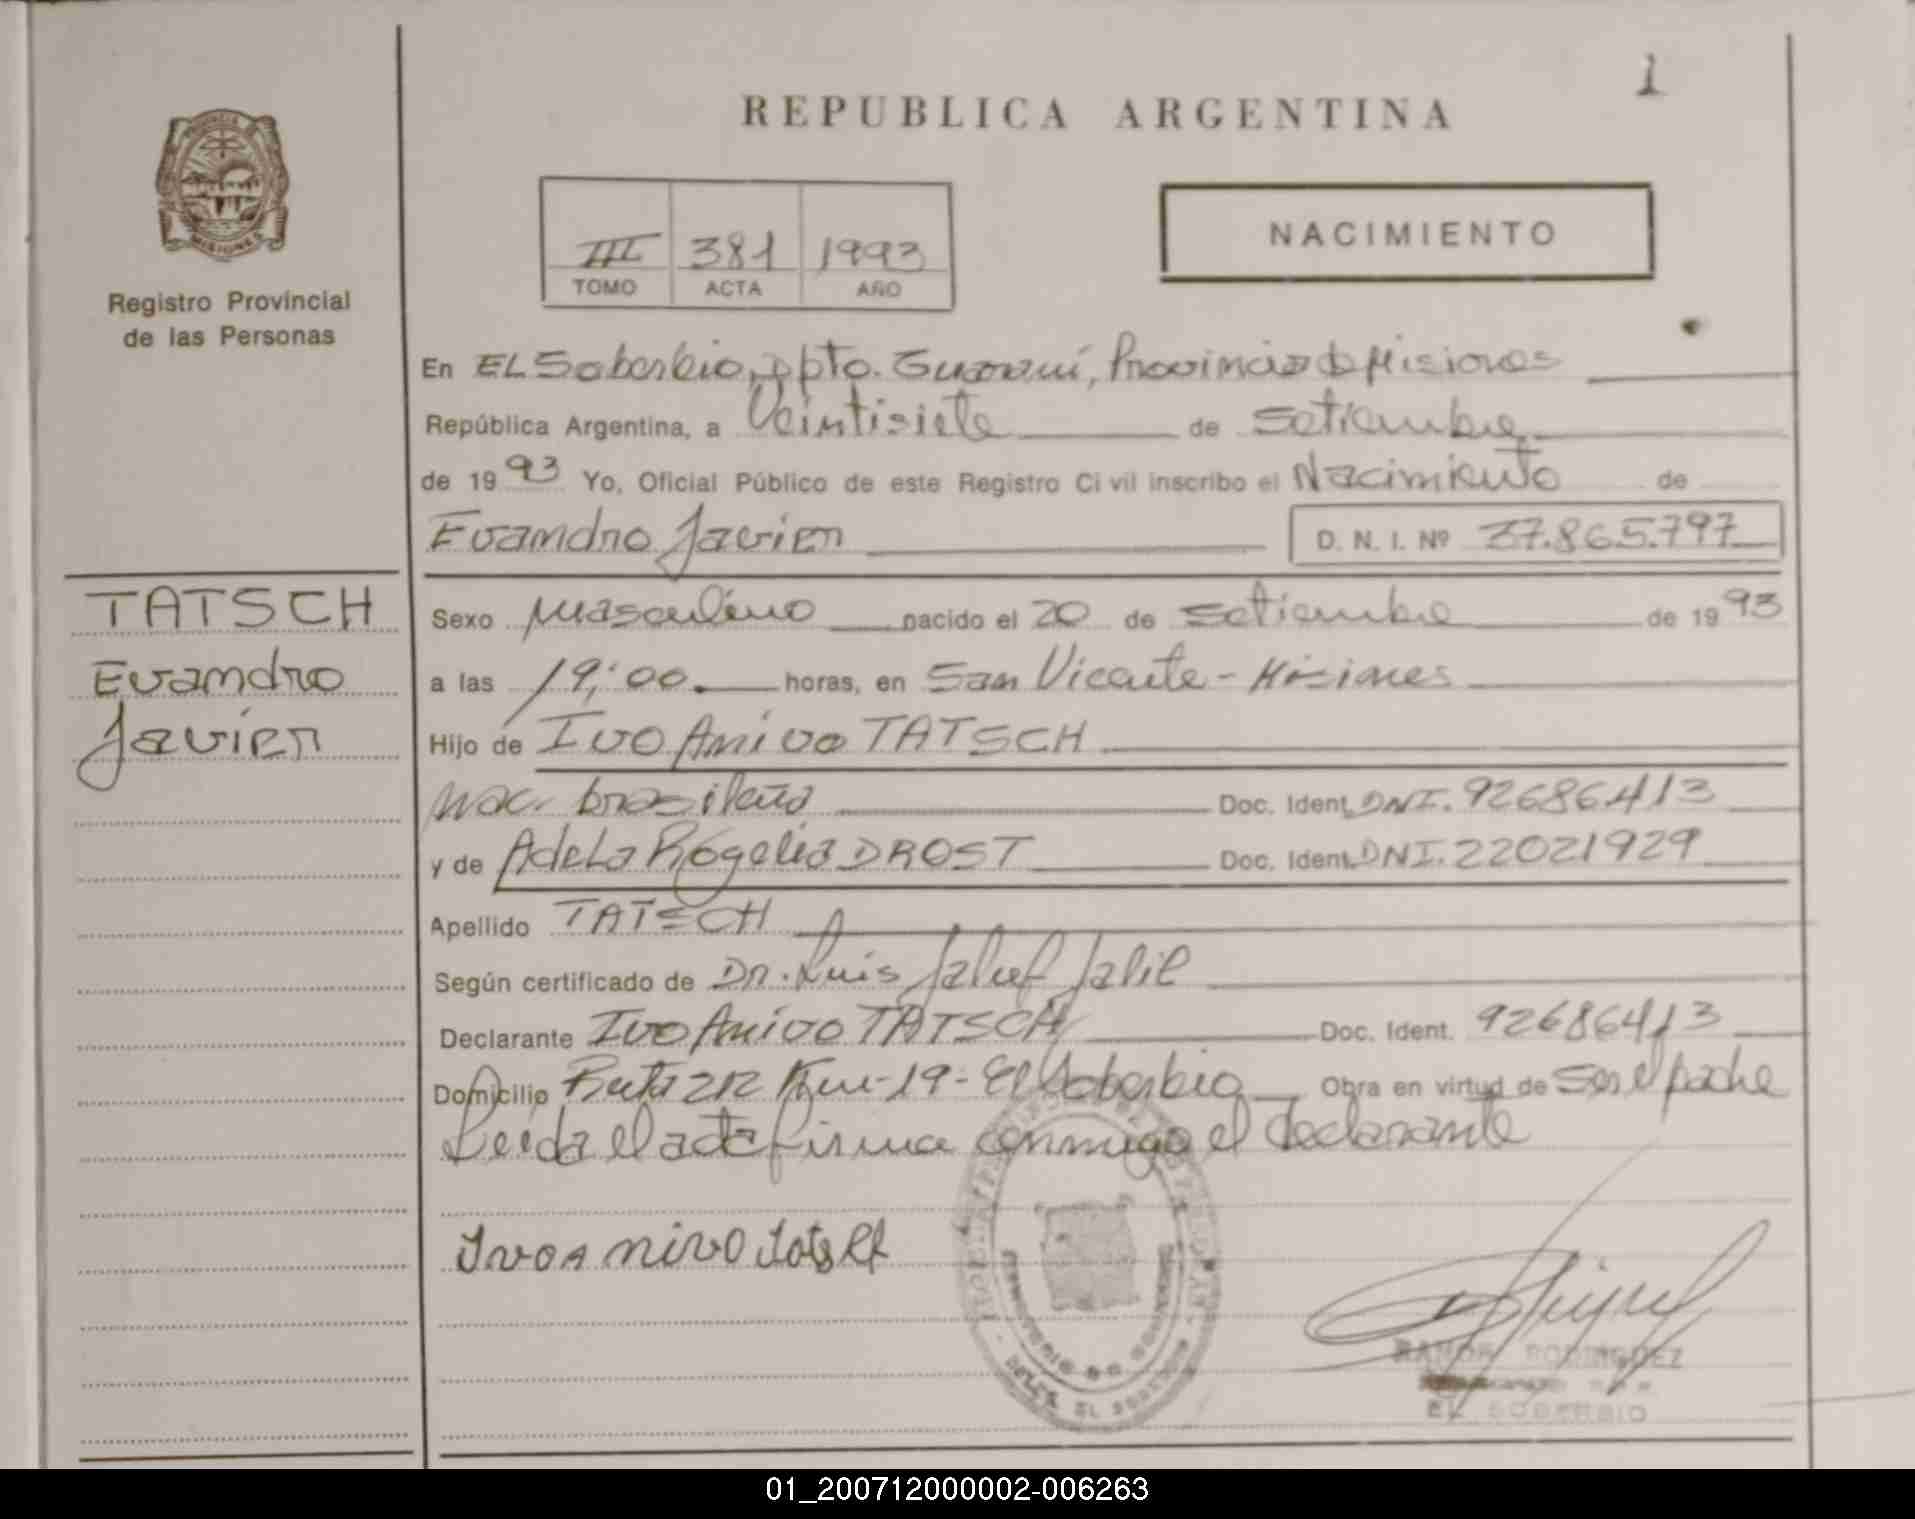 1
REPUBLICA ARGENTINA
PROVINCIA DE
MISIONES
Registro Provincial
de las Personas
III 381 1993
TOMO ACTA AÑO
NACIMIENTO
En EL Soberbio, Dpto. Guaraní, Provincia de Misiones
República Argentina, a Veintisiete de Setiembre
de 1993 Yo, Oficial Público de este Registro Civil inscribo el Nacimiento de
Evandro Javier D. N. I. Nº 37.865.797
TATSCH
Evandro
Javier
Sexo Masculino nacido el 20 de Setiembre de 1993
a las 19:00 horas, en San Vicente - Misiones
Hijo de Ivo Anivo TATSCH
Nac. brasileña Doc. Ident. DNI. 92686413
y de Adela Rogelia DROST Doc. Ident. DNI. 22021929
Apellido TATSCH
Según certificado de Dr. Luis Jaluf Jalil
Declarante Ivo Anivo TATSCH Doc. Ident. 92686413
Domicilio Ruta 212 Km-19- El Soberbio Obra en virtud de Ser el padre
Leída el acta firma conmigo el declarante
Ivo Anivo Tatsch
RAMON RODRIGUEZ
EL SOBERBIO
EL SOBERBIO
01_200712000002-006263